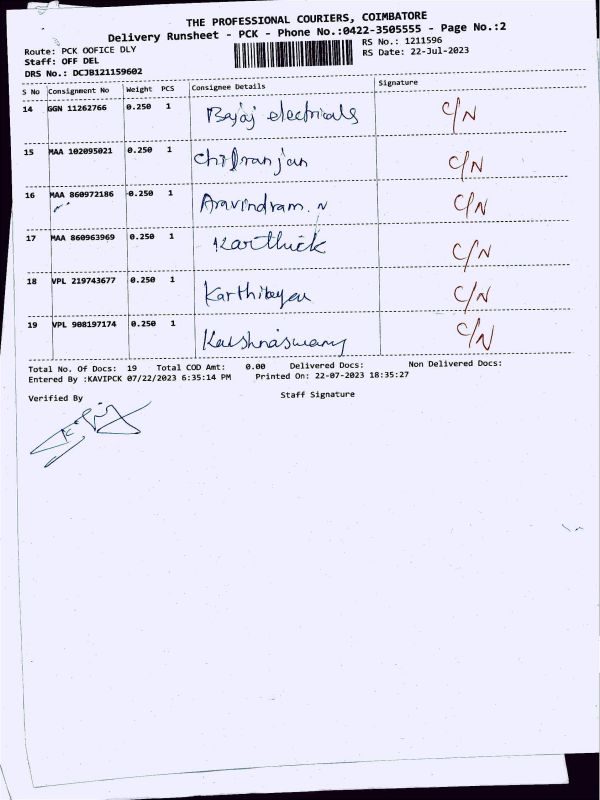 THE PROFESSIONAL COURIERS, COIMBATORE
Delivery Runsheet - PCK - Phone No.:0422-3505555 - Page No.:2
Route: PCK OOFICE DLY RS No.: 1211596
Staff: OFF DEL RS Date: 22-Jul-2023
DRS No.: DCJB121159602
S No Consignment No Weight PCS Consignee Details Signature
14 GGN 11262766 0.250 1 Bajaj electricals C/N
15 MAA 102095021 0.250 1 Chitranjan C/N
16 MAA 860972186 0.250 1 Aravindram. N C/N
17 MAA 860963969 0.250 1 Karthick C/N
18 VPL 219743677 0.250 1 Karthikeyan C/N
19 VPL 908197174 0.250 1 C/N
Total No. Of Docs: 19 Total COD Amt: 0.00 Delivered Docs: Non Delivered Docs:
Entered By :KAVIPCK 07/22/2023 6:35:14 PM Printed On: 22-07-2023 18:35:27
Verified By Staff Signature